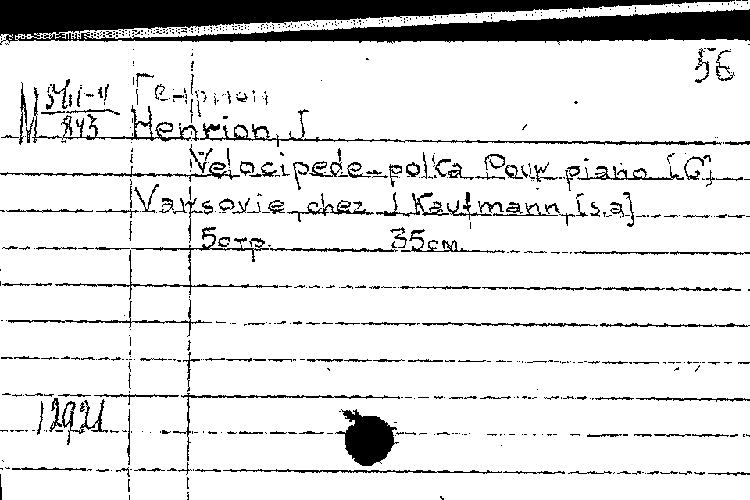 56
М 561-4/843
Генрион
Henrion, J.
Velocipede-polka Pour piano [G]
Varsovie, chez J. Kaufmann, [s.a]
5стр. 35см.
12921